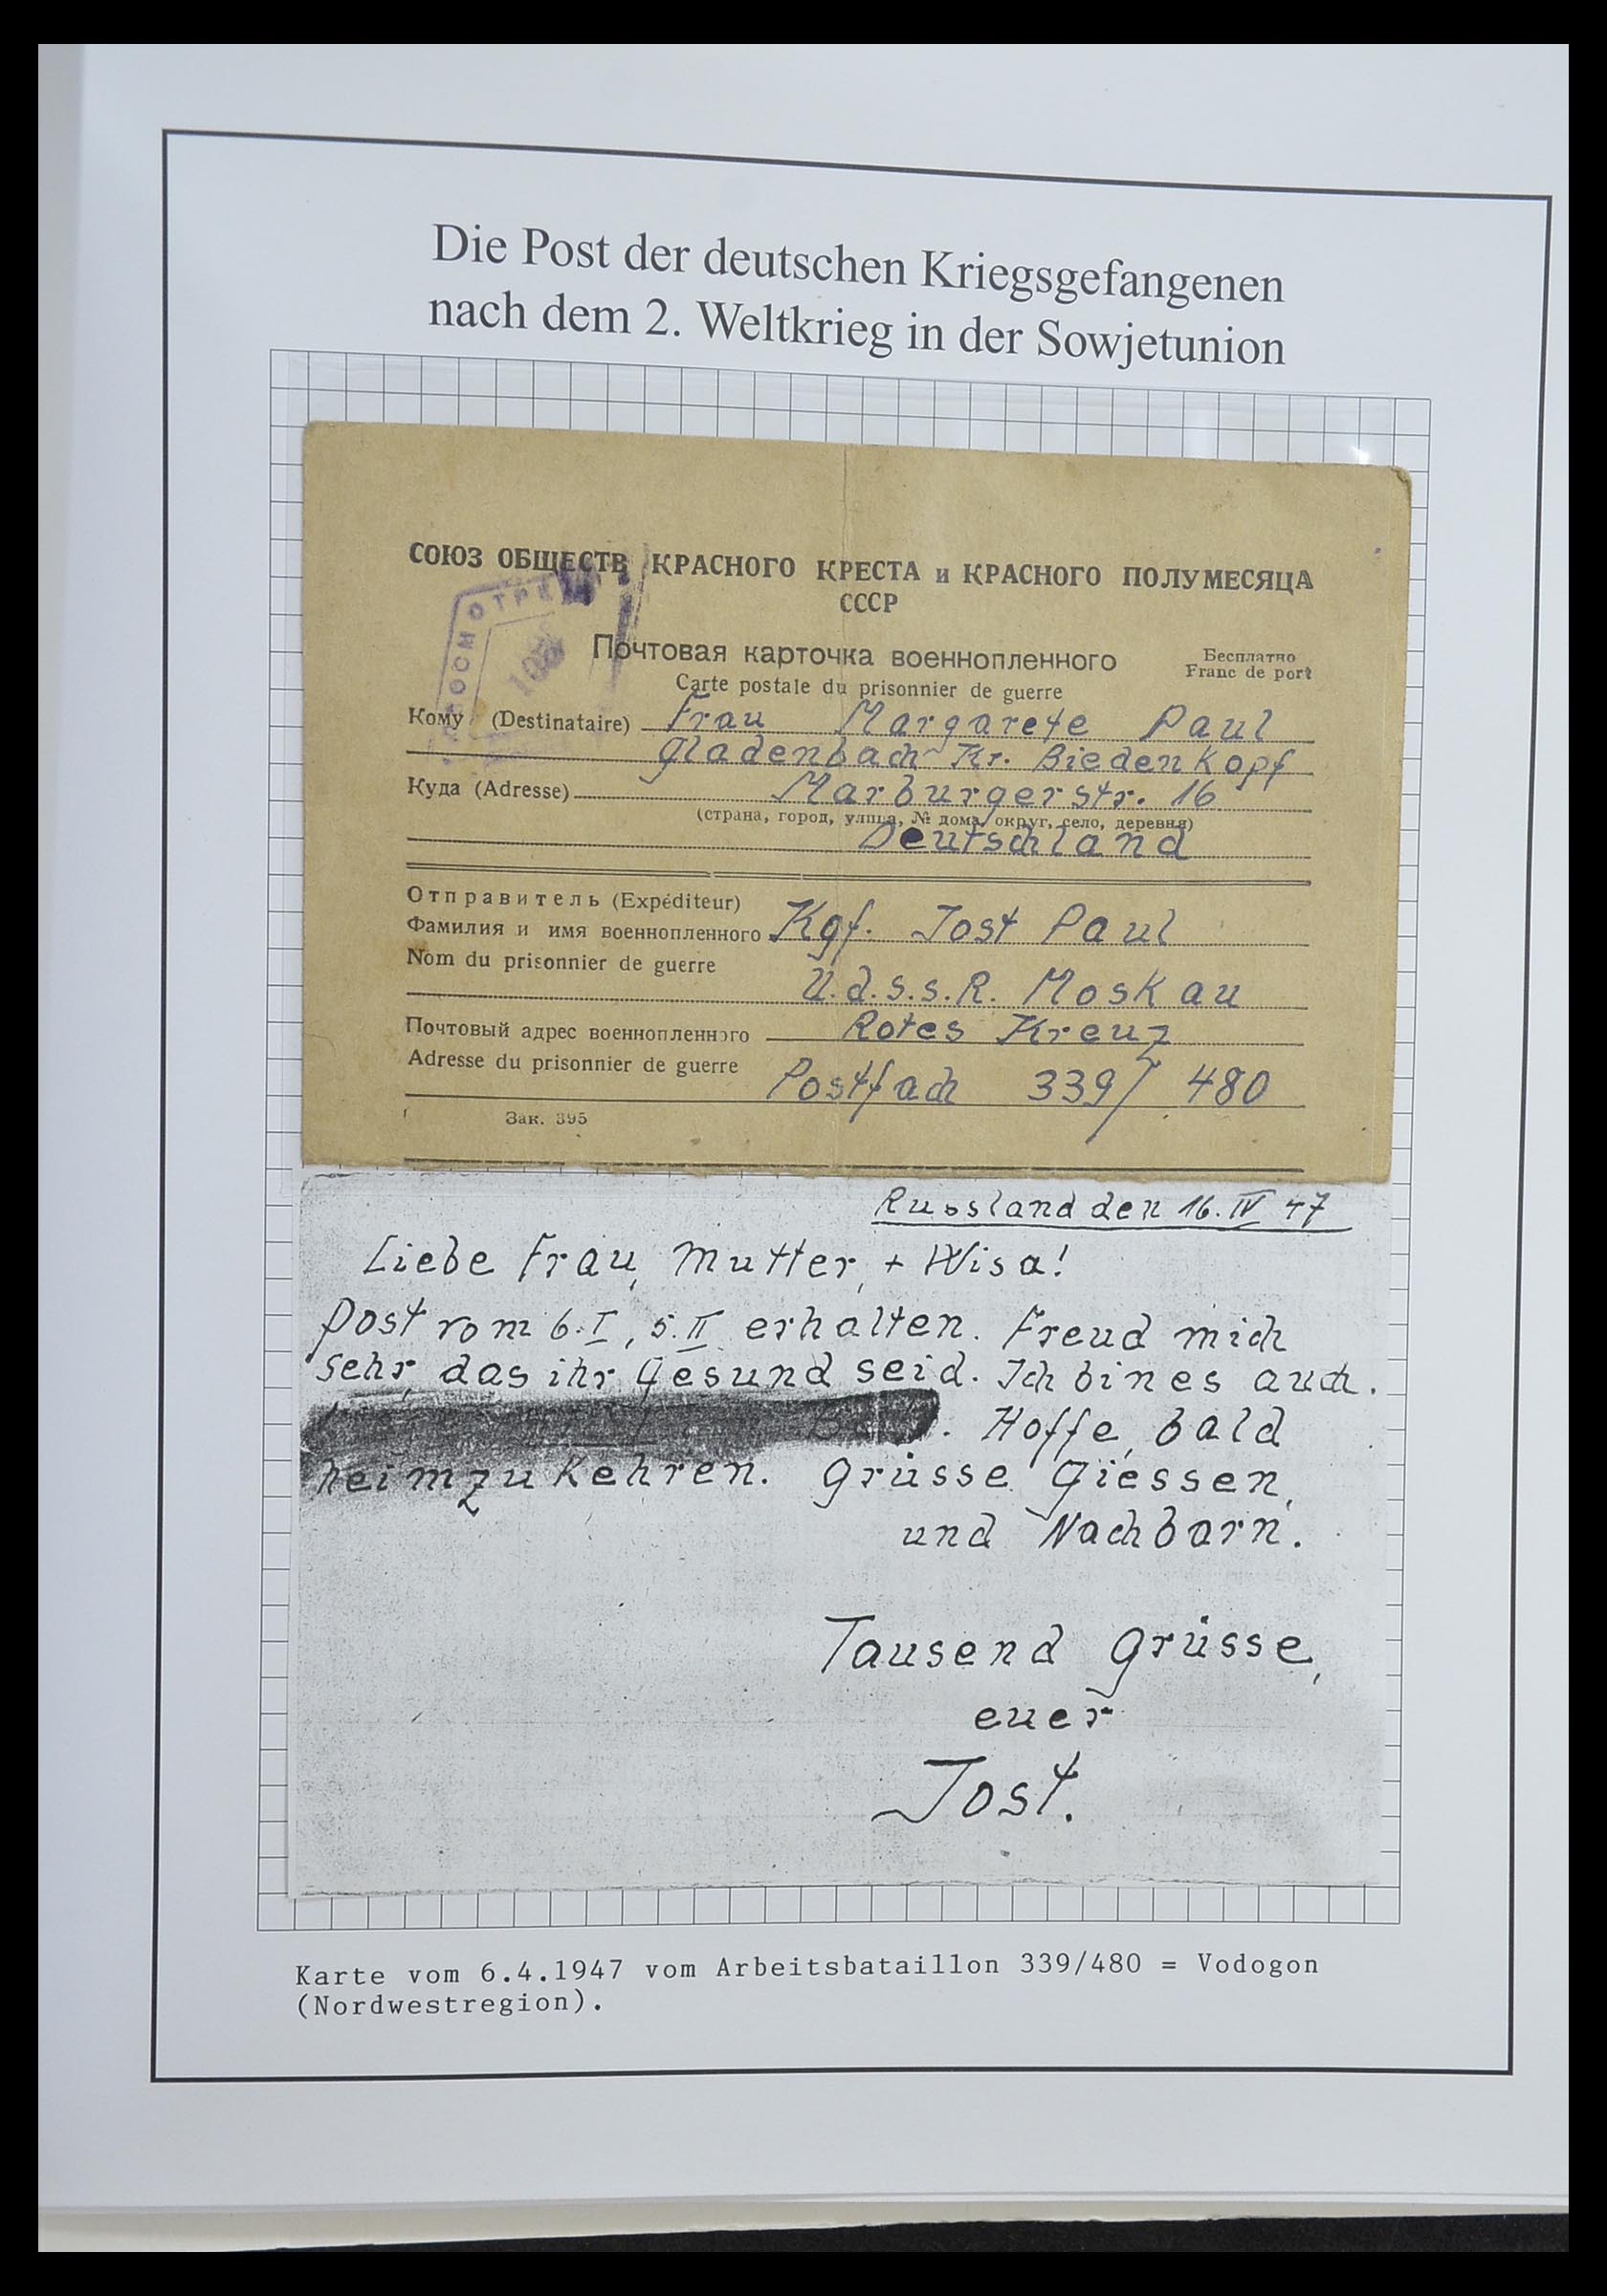 Die Post der deutschen Kriegsgefangenen
nach dem 2. Weltkrieg in der Sowjetunion
СОЮЗ ОБЩЕСТВ КРАСНОГО КРЕСТА и КРАСНОГО ПОЛУМЕСЯЦА
СССР
Почтовая карточка военнопленного
Бесплатно
Franc de port
Carte postale du prisonnier de guerre
Кому (Destinataire) Frau Margarete Paul
Gladenbach Kr. Biedenkopf
Куда (Adresse) Marburgerstr. 16
(страна, город, улица, № дома, округ, село, деревня)
Deutschland
Отправитель (Expéditeur)
Фамилия и имя военнопленного Kgf. Jost Paul
Nom du prisonnier de guerre
U.d.S.S.R. Moskau
Почтовый адрес военнопленного Rotes Kreuz
Adresse du prisonnier de guerre Postfach 339/ 480
Зак. 395
Russland den 16. IV 47
Liebe Frau, Mutter, + Wisa!
Post vom 6. I, 5. II erhalten. Freud mich
sehr, das ihr Gesund seid. Ich bin es auch.
. Hoffe, bald
heimzukehren. Grüsse Giessen,
und Nachbarn.
Tausend Grüsse,
euer
Jost.
Karte vom 6.4.1947 vom Arbeitsbataillon 339/480 = Vodogon
(Nordwestregion).